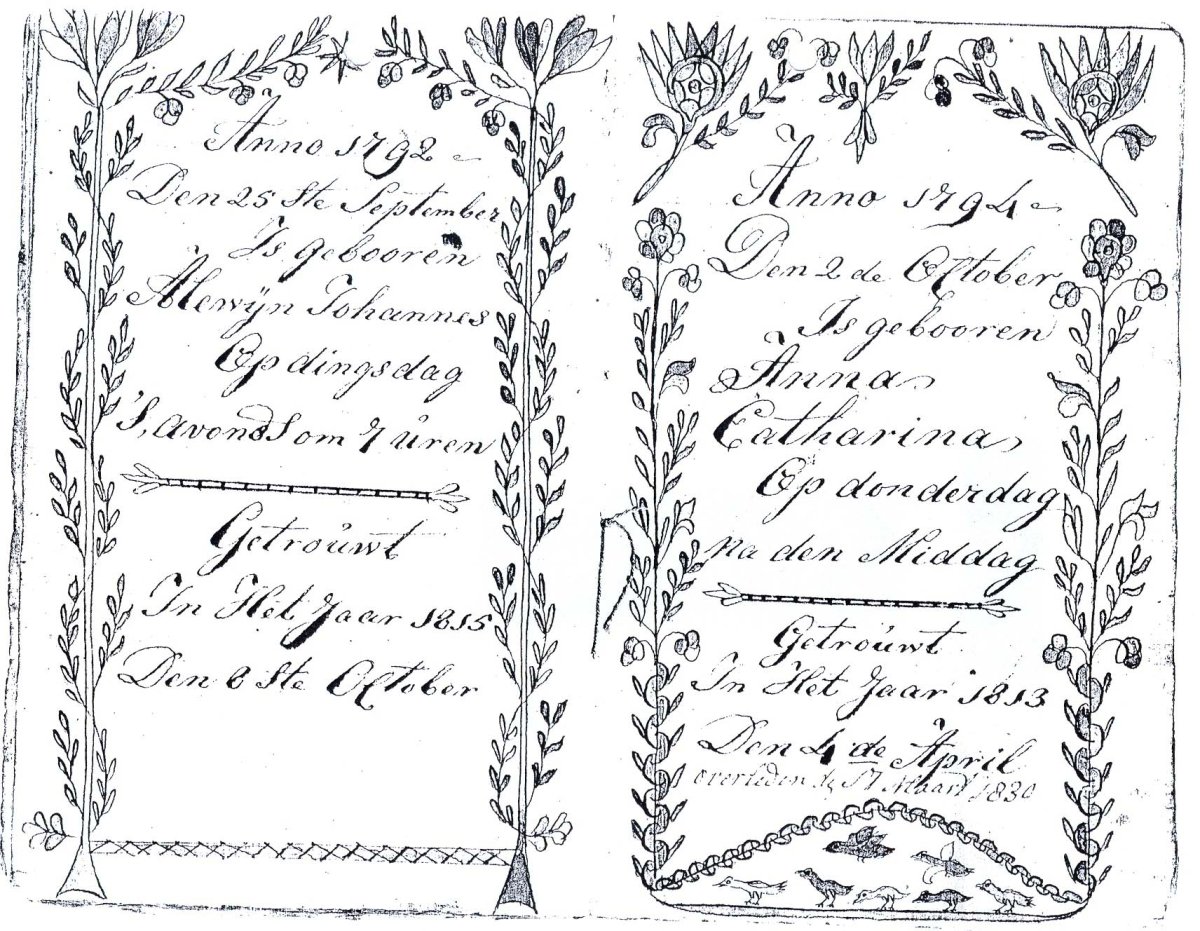 Anno 1792
Den 25 Ste September
Is gebooren
Alewijn Johannes
Op dingsdag
's, avonds om 7 uren
Getrouwt
In Het Jaar 1815
Den 6 Ste October
Anno 1794
Den 2 de October
Is gebooren
Anna
Catharina
Op donderdag
na den Middag
Getrouwt
In Het Jaar 1813
Den 4 de April
overleden de 17 Maart 1830